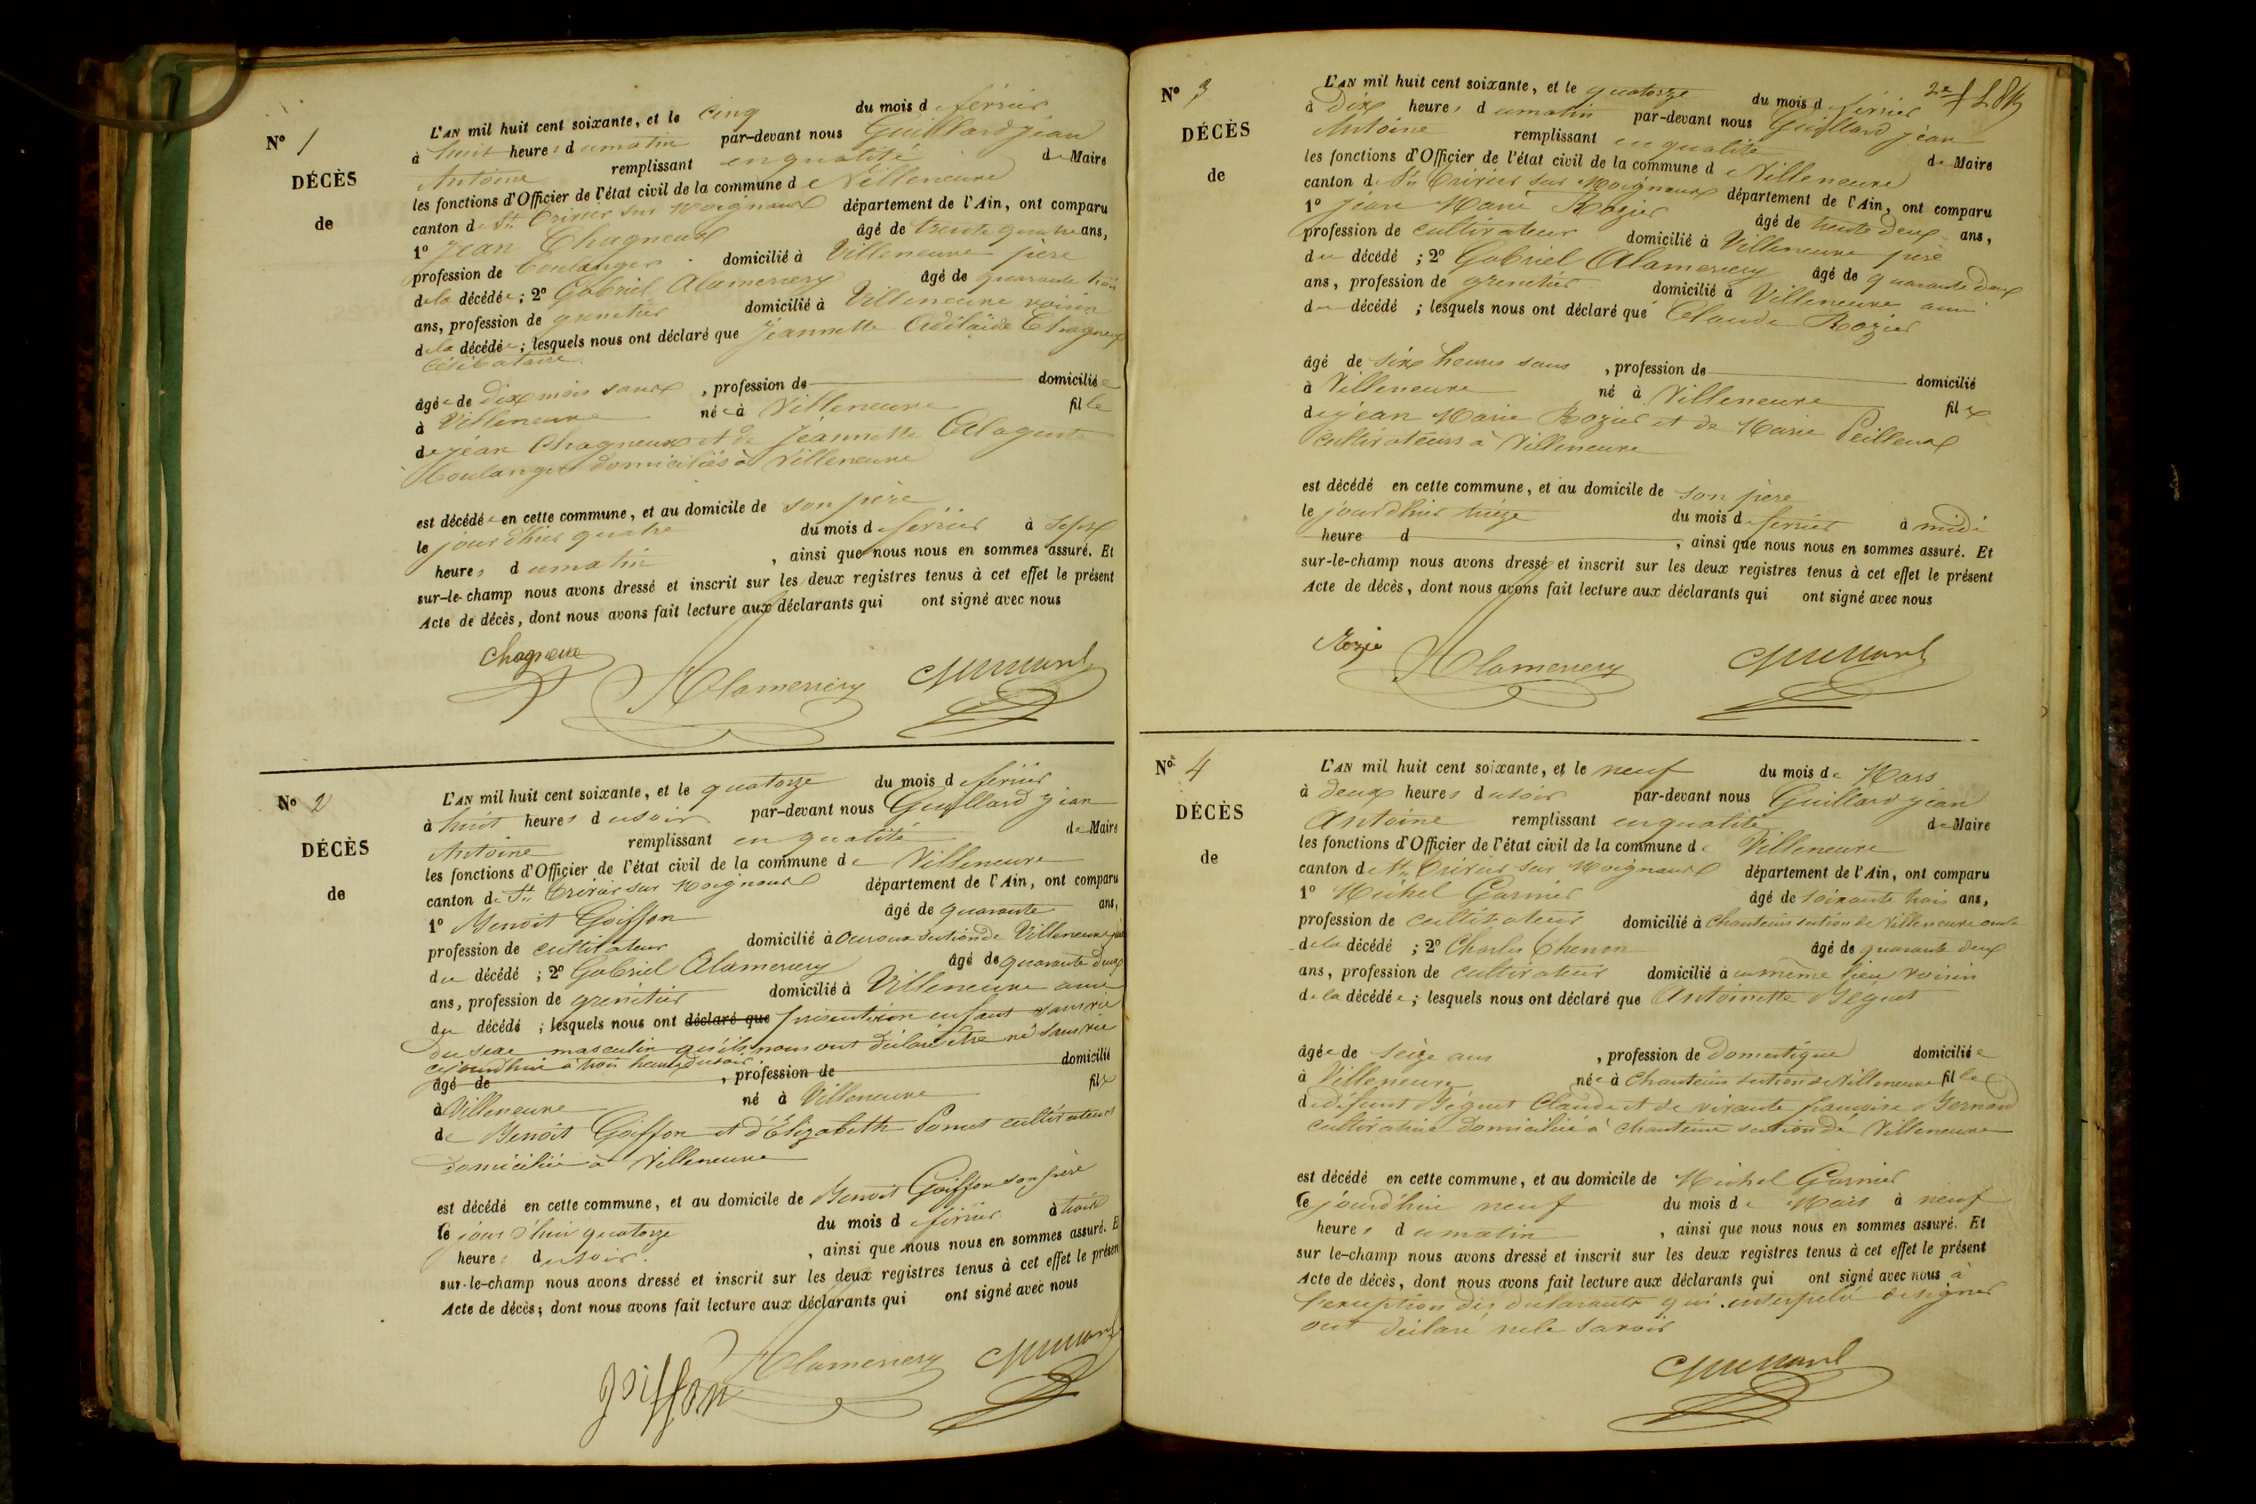 N° 1
DÉCÈS
de
L'AN mil huit cent soixante, et le cinq du mois de février
à huit heures du matin par-devant nous Guillard jean
Antoine remplissant en qualité de Maire
les fonctions d'Officier de l'état civil de la commune de Villeneuve
canton de St Trivier sur Moignans département de l'Ain, ont comparu
1° Jean Chagneux âgé de trente quatre ans,
profession de boulanger domicilié à Villeneuve père
de la décédée; 2° Gabriel Alamercery âgé de quarante trois
ans, profession de grenetier domicilié à Villeneuve voisin
de la décédée; lesquels nous ont déclaré que Jeannette Adélaïde Chagneux
célibataire
âgée de dix mois, profession de domiciliée
à Villeneuve née à Villeneuve fille
de jean Chagneux et de Jeannette
boulangers domiciliés à Villeneuve
est décédée en cette commune, et au domicile de son père
le jourd'hier quatre du mois de février à sept
heures du matin, ainsi que nous nous en sommes assuré. Et
sur-le-champ nous avons dressé et inscrit sur les deux registres tenus à cet effet le présent
Acte de décès, dont nous avons fait lecture aux déclarants qui ont signé avec nous
Chagneux Alamercery Guillard
N° 2
DÉCÈS
de
L'AN mil huit cent soixante, et le quatorze du mois de février
à huit heures du soir par-devant nous Guillard jean
Antoine remplissant en qualité de Maire
les fonctions d'Officier de l'état civil de la commune de Villeneuve
canton de St Trivier sur Moignans département de l'Ain, ont comparu
1° Benoit Goiffon âgé de quarante ans,
profession de cultivateur domicilié à section de Villeneuve père
du décédé ; 2° Gabriel Alamercery âgé de quarante deux
ans, profession de grenetier domicilié à Villeneuve ami
du décédé ; lesquels nous ont déclaré que présenté un enfant sans vie
du sexe masculin qu'ils nous ont déclaré être né sans vie
cejourd'hui à trois heures du soir
âgé de , profession de domicilié
à Villeneuve né à Villeneuve fils
de Benoît Goiffon et d'Elizabeth cultivateurs
domiciliés à Villeneuve
est décédé en cette commune, et au domicile de Benoit Goiffon son père
le jourd'hui quatorze du mois de février à trois
heures du soir, ainsi que nous nous en sommes assuré. Et
sur-le-champ nous avons dressé et inscrit sur les deux registres tenus à cet effet le présent
Acte de décès; dont nous avons fait lecture aux déclarants qui ont signé avec nous
Goiffon Alamercery Guillard
N° 3
DÉCÈS
de
L'AN mil huit cent soixante, et le quatorze du mois de février
à dix heures du matin par-devant nous Guillard jean
Antoine remplissant en qualité de Maire
les fonctions d'Officier de l'état civil de la commune de Villeneuve
canton de St Trivier sur Moignans département de l'Ain, ont comparu
1° jean Marie Rozier âgé de trente deux ans,
profession de cultivateur domicilié à Villeneuve père
du décédé ; 2° Gabriel Alamercery âgé de quarante deux
ans, profession de grenetier domicilié à Villeneuve ami
du décédé ; lesquels nous ont déclaré que Claude Rozier
âgé de six heures, profession de domicilié
à Villeneuve né à Villeneuve fils
de jean Marie Rozier et de Marie Peilleux
cultivateurs à Villeneuve
est décédé en cette commune, et au domicile de son père
le jourd'hier treize du mois de février à midi
heure d , ainsi que nous nous en sommes assuré. Et
sur-le-champ nous avons dressé et inscrit sur les deux registres tenus à cet effet le présent
Acte de décès, dont nous avons fait lecture aux déclarants qui ont signé avec nous
Rozié Alamercery Guillard
N° 4
DÉCÈS
de
L'AN mil huit cent soixante, et le neuf du mois de Mars
à deux heures du soir par-devant nous Guillard jean
Antoine remplissant en qualité de Maire
les fonctions d'Officier de l'état civil de la commune de Villeneuve
canton de St Trivier sur Moignans département de l'Ain, ont comparu
1° Michel Garnier âgé de soixante trois ans,
profession de cultivateur domicilié à Chanteins section de Villeneuve oncle
de la décédé ; 2° Charles Chenon âgé de quarante deux
ans, profession de cultivateur domicilié à au même lieu voisin
de la décédée ; lesquels nous ont déclaré que Antoinette Béguet
âgée de seize ans, profession de Domestique domiciliée
à Villeneuve née à Chanteins section de Villeneuve fille
de défunt Béguet Claude et de vivante françoise Bernard
cultivatrice domiciliée à Chanteins section de Villeneuve
est décédé en cette commune, et au domicile de Michel Garnier
le jourd'hui neuf du mois de Mars à neuf
heures du matin, ainsi que nous nous en sommes assuré. Et
sur le-champ nous avons dressé et inscrit sur les deux registres tenus à cet effet le présent
Acte de décès, dont nous avons fait lecture aux déclarants qui ont signé avec nous à
l'exception des déclarants qui interpelé de signer
ont déclaré ne le savoir
Guillard